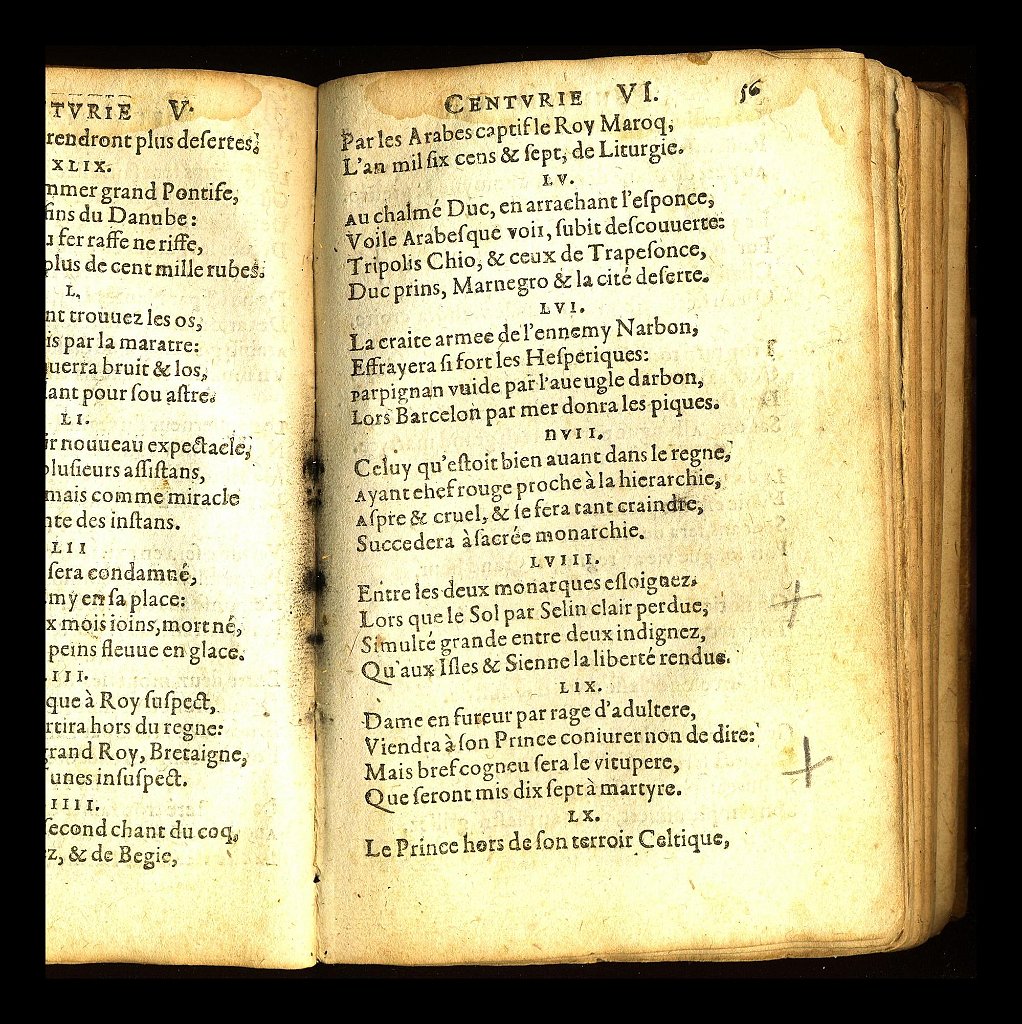 TVRIE V.
rendront plus deſertes.
XLIX.
mmer grand Pontife,
fins du Danube:
u fer raffe ne riffe,
plus de cent mille rubes.
L,
nt trouuez les os,
is par la maratre:
uerra bruit & los,
ant pour ſou aſtre.
LI.
ir nouueau expectacle,
pluſieurs aſſiſtans,
mais comme miracle
nte des inſtans.
LII
ſera condamné,
my en ſa place:
x mois ioins, mort né,
peins fleuue en glace.
III.
que à Roy ſuſpect,
rtira hors du regne:
grand Roy, Bretaigne,
unes inſuſpect.
IIII.
ſecond chant du coq,
z, & de Begie,
CENTVRIE VI. 56
Par les Arabes captif le Roy Maroq,
L'an mil ſix cens & ſept, de Liturgie.
LV.
Au chalmé Duc, en arrachant l'eſponce,
Voile Arabeſque voir, ſubit deſcouuerte:
Tripolis Chio, & ceux de Trapeſonce,
Duc prins, Marnegro & la cité deſerte.
LVI.
La craite armee de l'ennemy Narbon,
Effrayera ſi fort les Heſperiques:
parpignan vuide par l'aueugle darbon,
Lors Barcelon par mer donra les piques.
nVII.
Celuy qu'eſtoit bien auant dans le regne,
Ayant ehef rouge proche à la hierarchie,
Aſpre & cruel, & ſe fera tant craindre,
Succedera à ſacrée monarchie.
LVIII.
Entre les deux monarques eſloignez.
Lors que le Sol par Selin clair perdue,
Simulté grande entre deux indignez,
Qu'aux Iſles & Sienne la liberté rendue.
LIX.
Dame en fureur par rage d'adultere,
Viendra à ſon Prince coniurer non de dire:
Mais bref cogneu ſera le vitupere,
Que ſeront mis dix ſept à martyre.
LX.
Le Prince hors de ſon terroir Celtique,